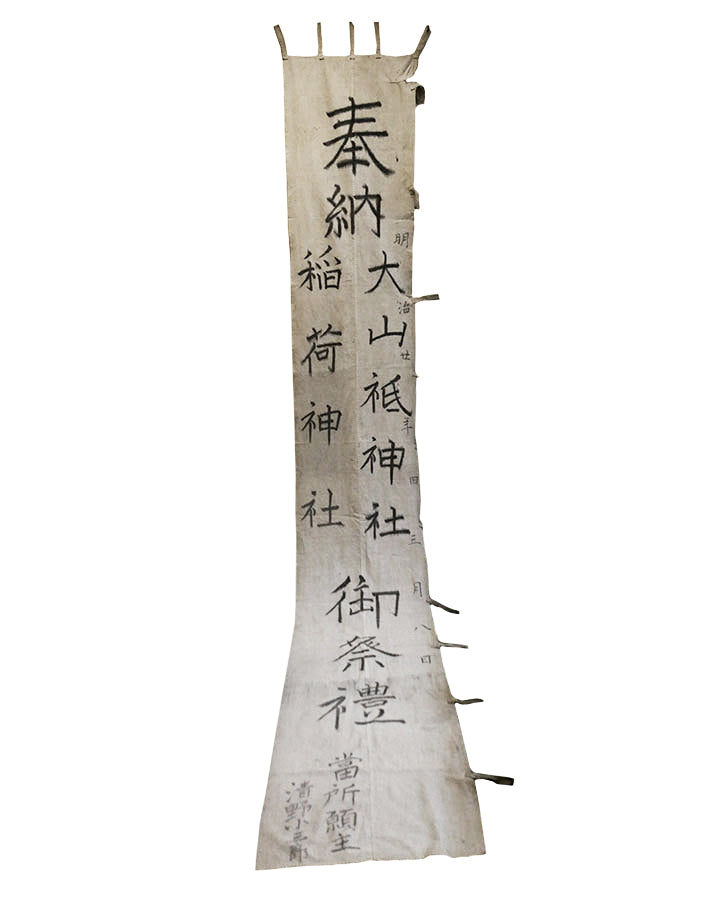 明治廿年四三月八日
奉納
大山祗神社
稲荷神社
御祭禮
當所願主
清野小三郎